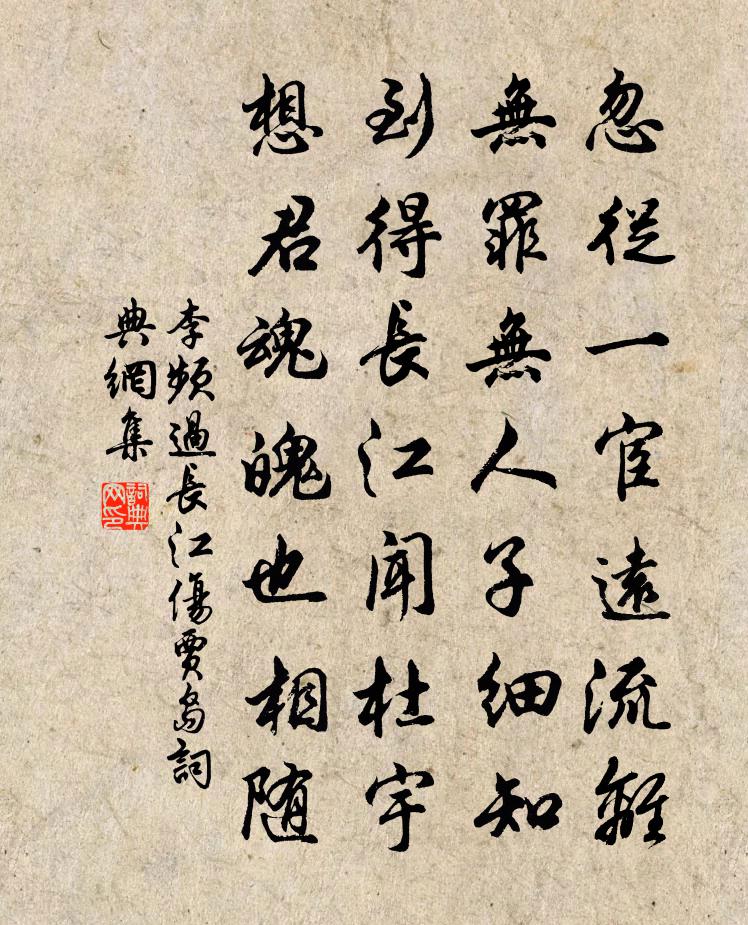 忽從一宦遠流離
無罪無人子細知
到得長江聞杜宇
想君魂魄也相隨
李頻過長江傷賈島詞
典網集
詞典
网印